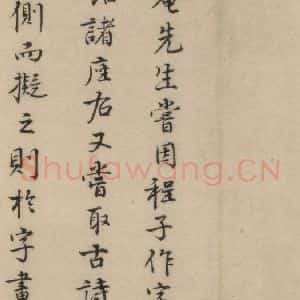 庵先生嘗因程子作字
諸座右又嘗取古詩
側而擬之則於字畫
Shufawang.CN